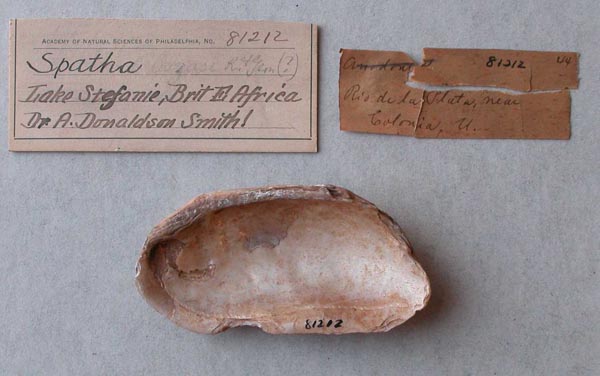 ACADEMY OF NATURAL SCIENCES OF PHILADELPHIA, NO. 81212
Spatha (?)
Lake Stefanie, Brit E Africa
Dr A. Donaldson Smith!
81212
Rio de la Plata, near
Colonia, U.
81212